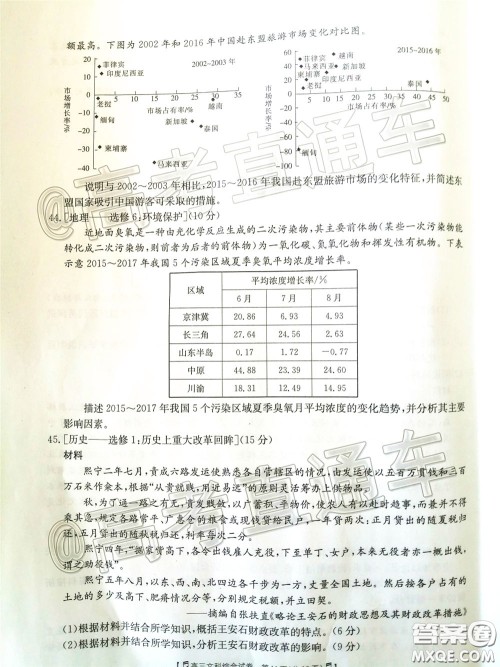 额最高。下图为2002年和2016年中国赴东盟旅游市场变化对比图。
2002~2003年
菲律宾
印度尼西亚
老挝
缅甸
越南
新加坡
泰国
柬埔寨
马来西亚
市场增长率/%
市场占有率/%
20
10
0
-10
-20
-30
-40
5 10 15 20 25 30 35
2015~2016年
菲律宾
越南
马来西亚
新加坡
柬埔寨
印度尼西亚
老挝
泰国
缅甸
市场增长率/%
市场占有率/%
60
40
20
0
-20
-40
-60
-80
5 10 15 20 25 30 35 40 45 50
说明与2002~2003年相比,2015~2016年我国赴东盟旅游市场的变化特征,并简述东
盟国家吸引中国游客可采取的措施。
44.[地理——选修6:环境保护](10分)
近地面臭氧是一种由光化学反应生成的二次污染物,其主要前体物(某些一次污染物能
转化成二次污染物,则前者为后者的前体物)为一氧化碳、氮氧化物和挥发性有机物。下表
示意2015~2017年我国5个污染区域夏季臭氧平均浓度增长率。
区域 平均浓度增长率/%
6月 7月 8月
京津冀 20.86 6.93 4.93
长三角 27.64 24.56 2.63
山东半岛 0.17 1.72 -0.77
中原 44.88 23.39 24.60
川渝 18.31 12.49 14.95
描述2015~2017年我国5个污染区域夏季臭氧月平均浓度的变化趋势,并分析其主要
影响因素。
45.[历史——选修1:历史上重大改革回眸](15分)
材料
熙宁二年七月,责成六路发运使熟悉各自管辖区的情况,由发运使以五百万贯钱和三百
万石米作籴本,根据“从贵就贱,用近易远”的原则灵活筹办上供物品。
秋,为了运一路之有无,贵发贱敛,以广蓄积、平物价,使农人有以赴时趋事,而兼并不得
乘其急。规定各路常平、广惠仓的粮食或现钱贷给居民户,一年贷两次,正月归还的随夏税
归还,五月贷出的随秋税归还,利率每次二分。
熙宁四年,“据家赀高下,各令出钱雇人充役,下至单丁、女户,本来无役者亦一概出钱,
谓之助役钱”。
熙宁五年八月,以东、西、南、北四边各千步为一方,丈量全国土地。然后按各户占有的
土地的多少及高下、肥瘠情况等,分别规定税额,并立田契。
——摘编自张扶直《略论王安石的财政思想及其财政改革措施》
(1)根据材料并结合所学知识,概括王安石财政改革的特点。(6分)
(2)根据材料并结合所学知识,评价王安石的财政改革。(9分)
高考直通车
高考直通车
高考直通车
答案圈
MXQE.COM